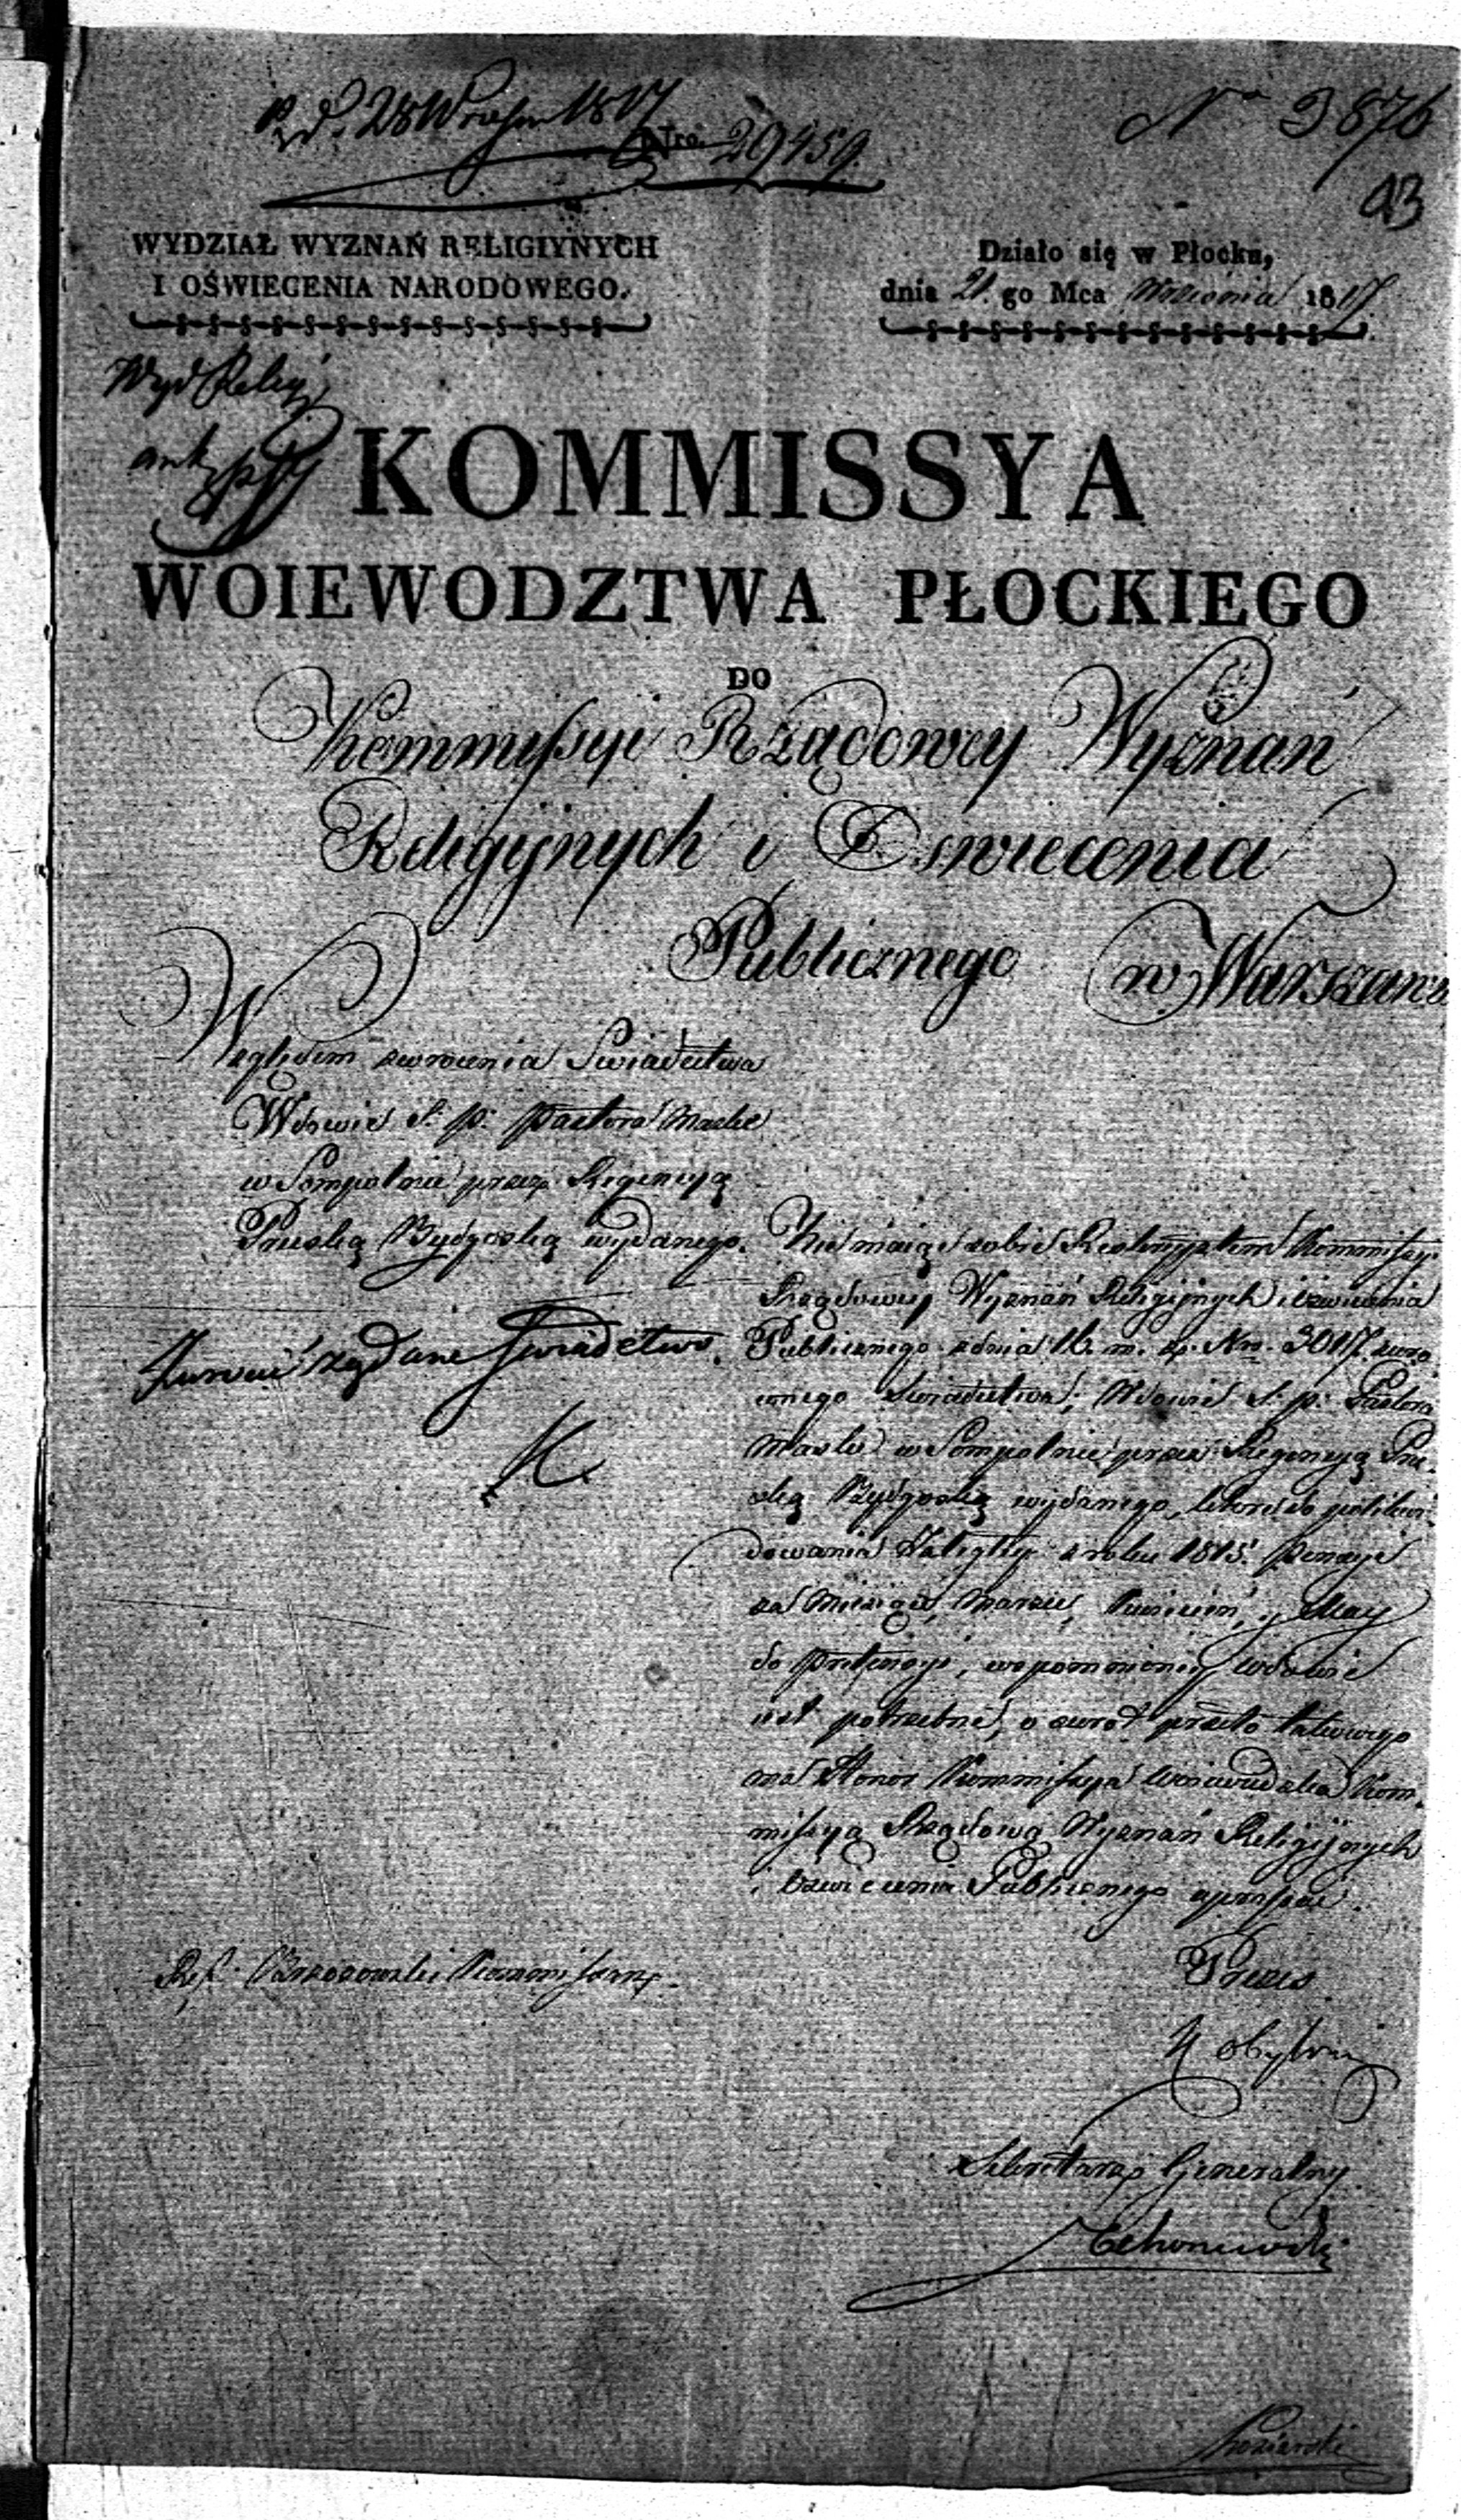 d. 28 Wrześn 1817
Nro. 29459.
No 3876
93
WYDZIAŁ WYZNAŃ RELIGIYNYCH
I OŚWIECENIA NARODOWEGO.
Działo się w Płocku,
dnia 21. go Mca Września 1817.
Wyd Religij
KOMMISSYA
WOIEWODZTWA PŁOCKIEGO
DO
Kommissyi Rządowey Wyznań
Religijnych i Oswiecenia
Publicznego w Warszawie
Względem zwrocenia Swiadectwa
Wdowie S. p. Pastora Maske
w Sompolnie przez Regencyą
Pruską Bydgoską wydanego.
Zwrocić żądane Swiadectwo.
Nie maiąc sobie Reskryptem Kommissyi
Rządowey Wyznań Religijnych i Oswiecenia
Publicznego z dnia 16. m. z. Nro. 3017. zwro
conego Swiadectwa, Wdowie S. p. Pastora
Maske w Sompolnie przez Regencyą Pru-
ską Bydgoską wydanego, ktore do polikwi-
dowania Zaległey z roku 1815. Pensyi
za Miesiące, Marzec, Kwiecień, y May
do pretensyi, wspomnioney wdowie
iest potrzebne, o zwrot przeto takowego
ma Honor Kommissya Woiewodzka Kom-
missyą Rządową Wyznań Religijnych
i Oswiecenia Publicznego upraszać.
Ref. Brzozowski Kommissarz.
Prezes
Sekretarz Generalny